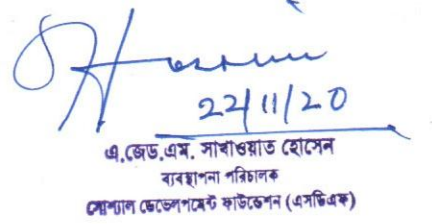 Hossain
22/11/20
এ.জেড.এম. সাখাওয়াত হোসেন
ব্যবস্থাপনা পরিচালক
সোশ্যাল ডেভেলপমেন্ট ফাউন্ডেশন (এসডিএফ)